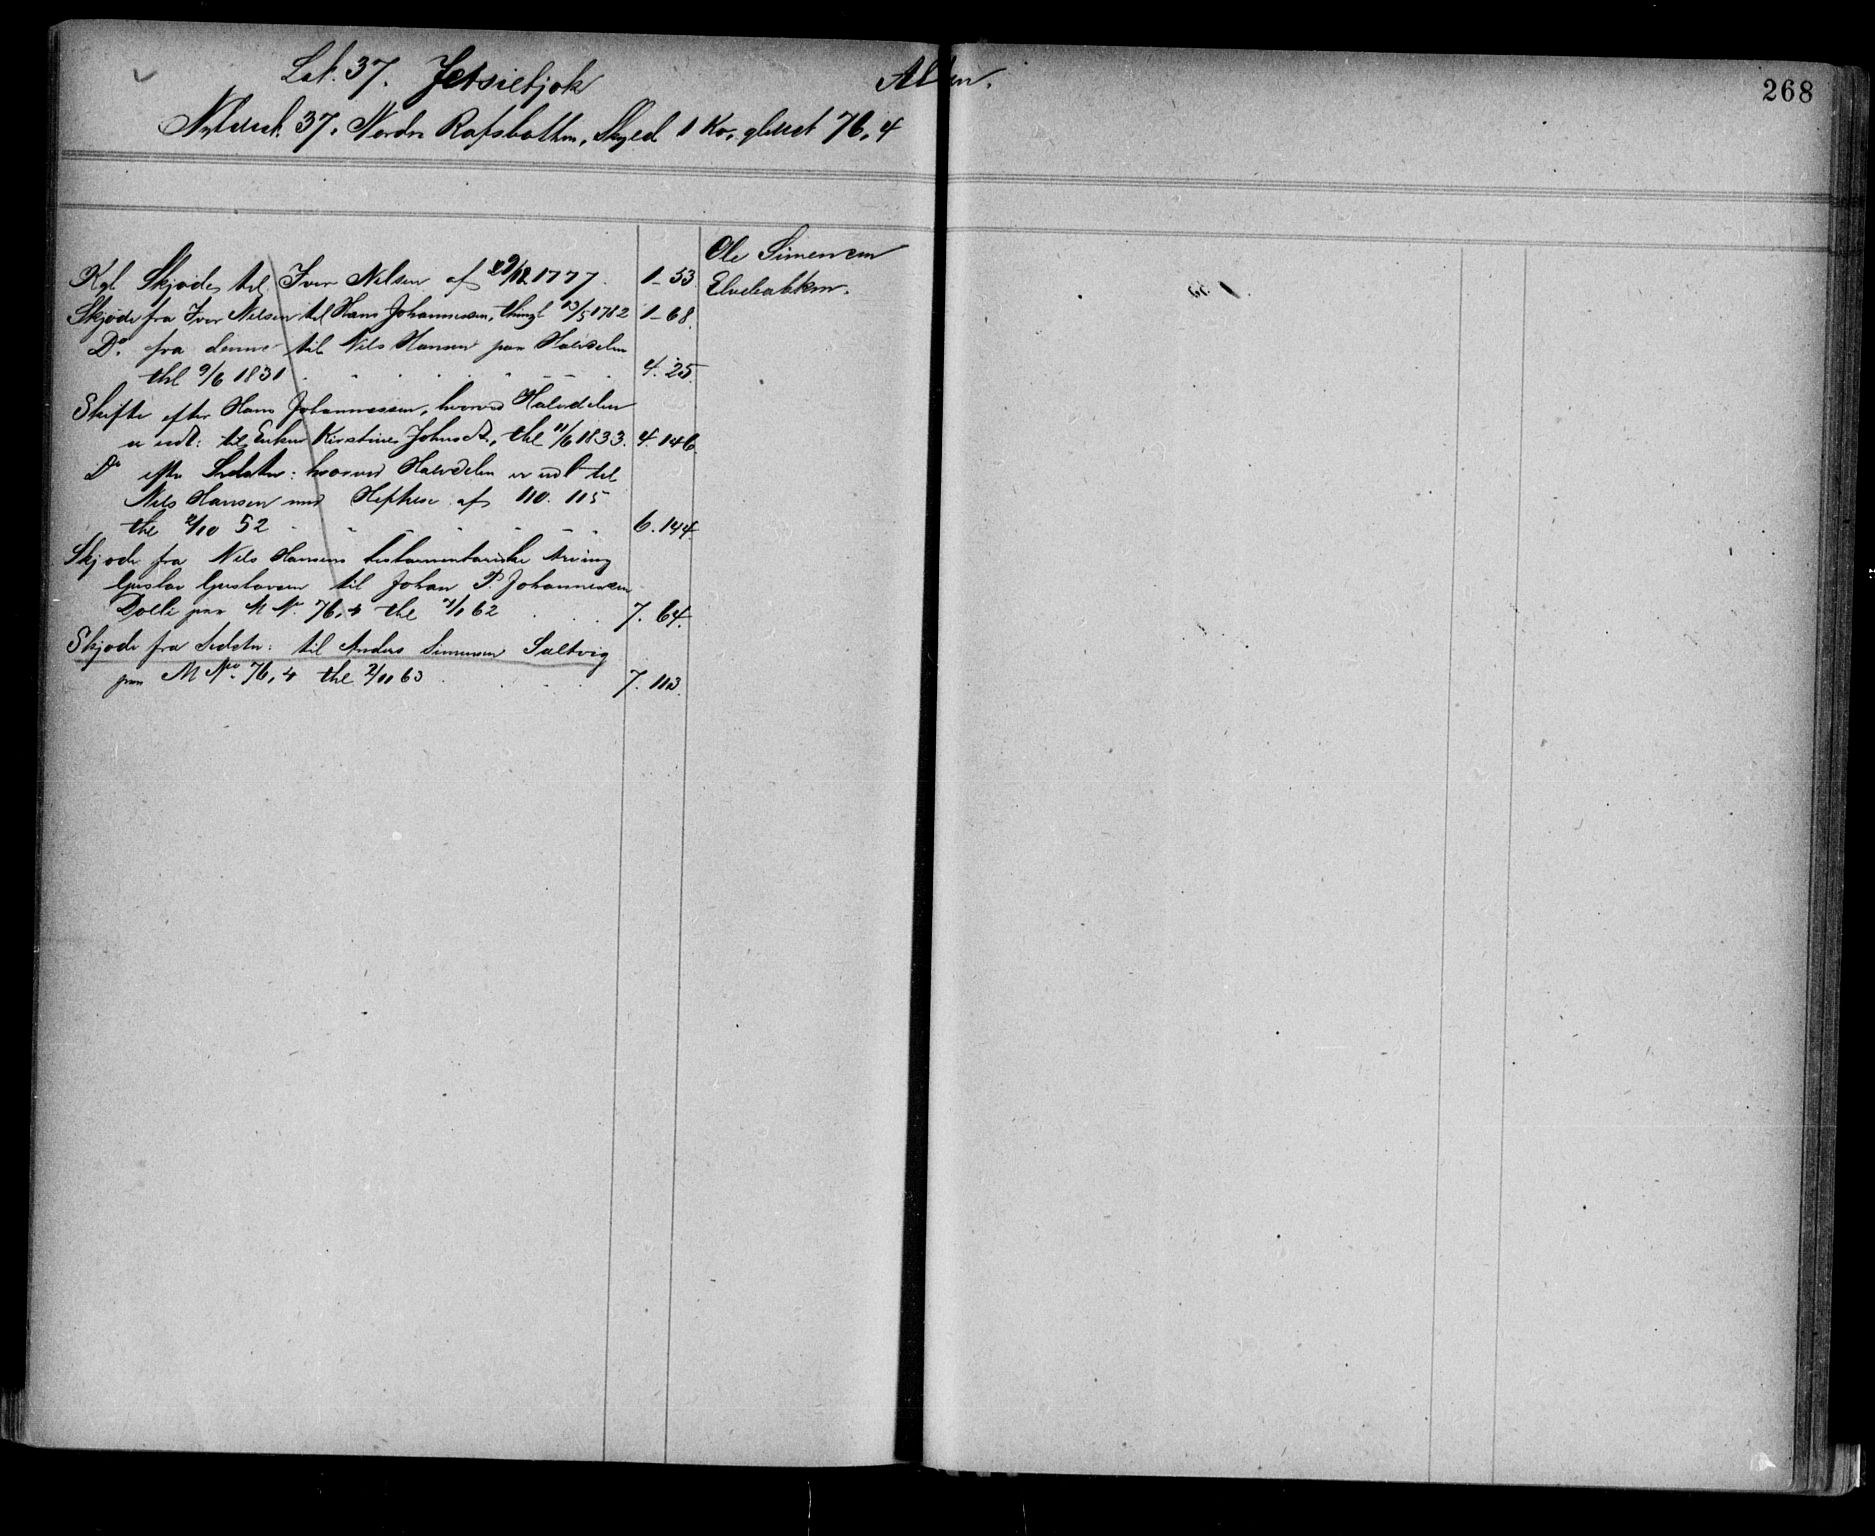 Lat. 37. Jetsietjok Alten.
268
Nyt 37. Nordre Rafsbotten, Skyld 1 Ko, gl 76,4
Ole Simensen
Kgl Skjøde til Iver Nilsen af 29/12 1777. 1-53
Elvebakken.
Skjøde fra Iver Nilsen til Hans Johannessen, thingl 13/5 1782 1-68.
Do fra denne til Nils Hansen paa Halvdelen
thl 9/6 1831 4. 25.
Skifte efter Hans Johannessen, hvorved Halvdelen
er udl: til Enken Kirstine Johnsd., thl 11/6 1833. 4. 146
Do efter Sidstn: hvorved Halvdelen er udl til
Nils Hansen med af 110. 115
thl 2/10 52 6. 144
Skjøde fra Nils Hansens testamentariske Arving
Gustav Gustavsen til Johan P Johannessen
paa M No. 76,4 thl 62 7. 64.
Skjøde fra Sidstn: til Anders Simensen Saltvig
paa M No. 76,4 thl 2/11 63 7. 113.